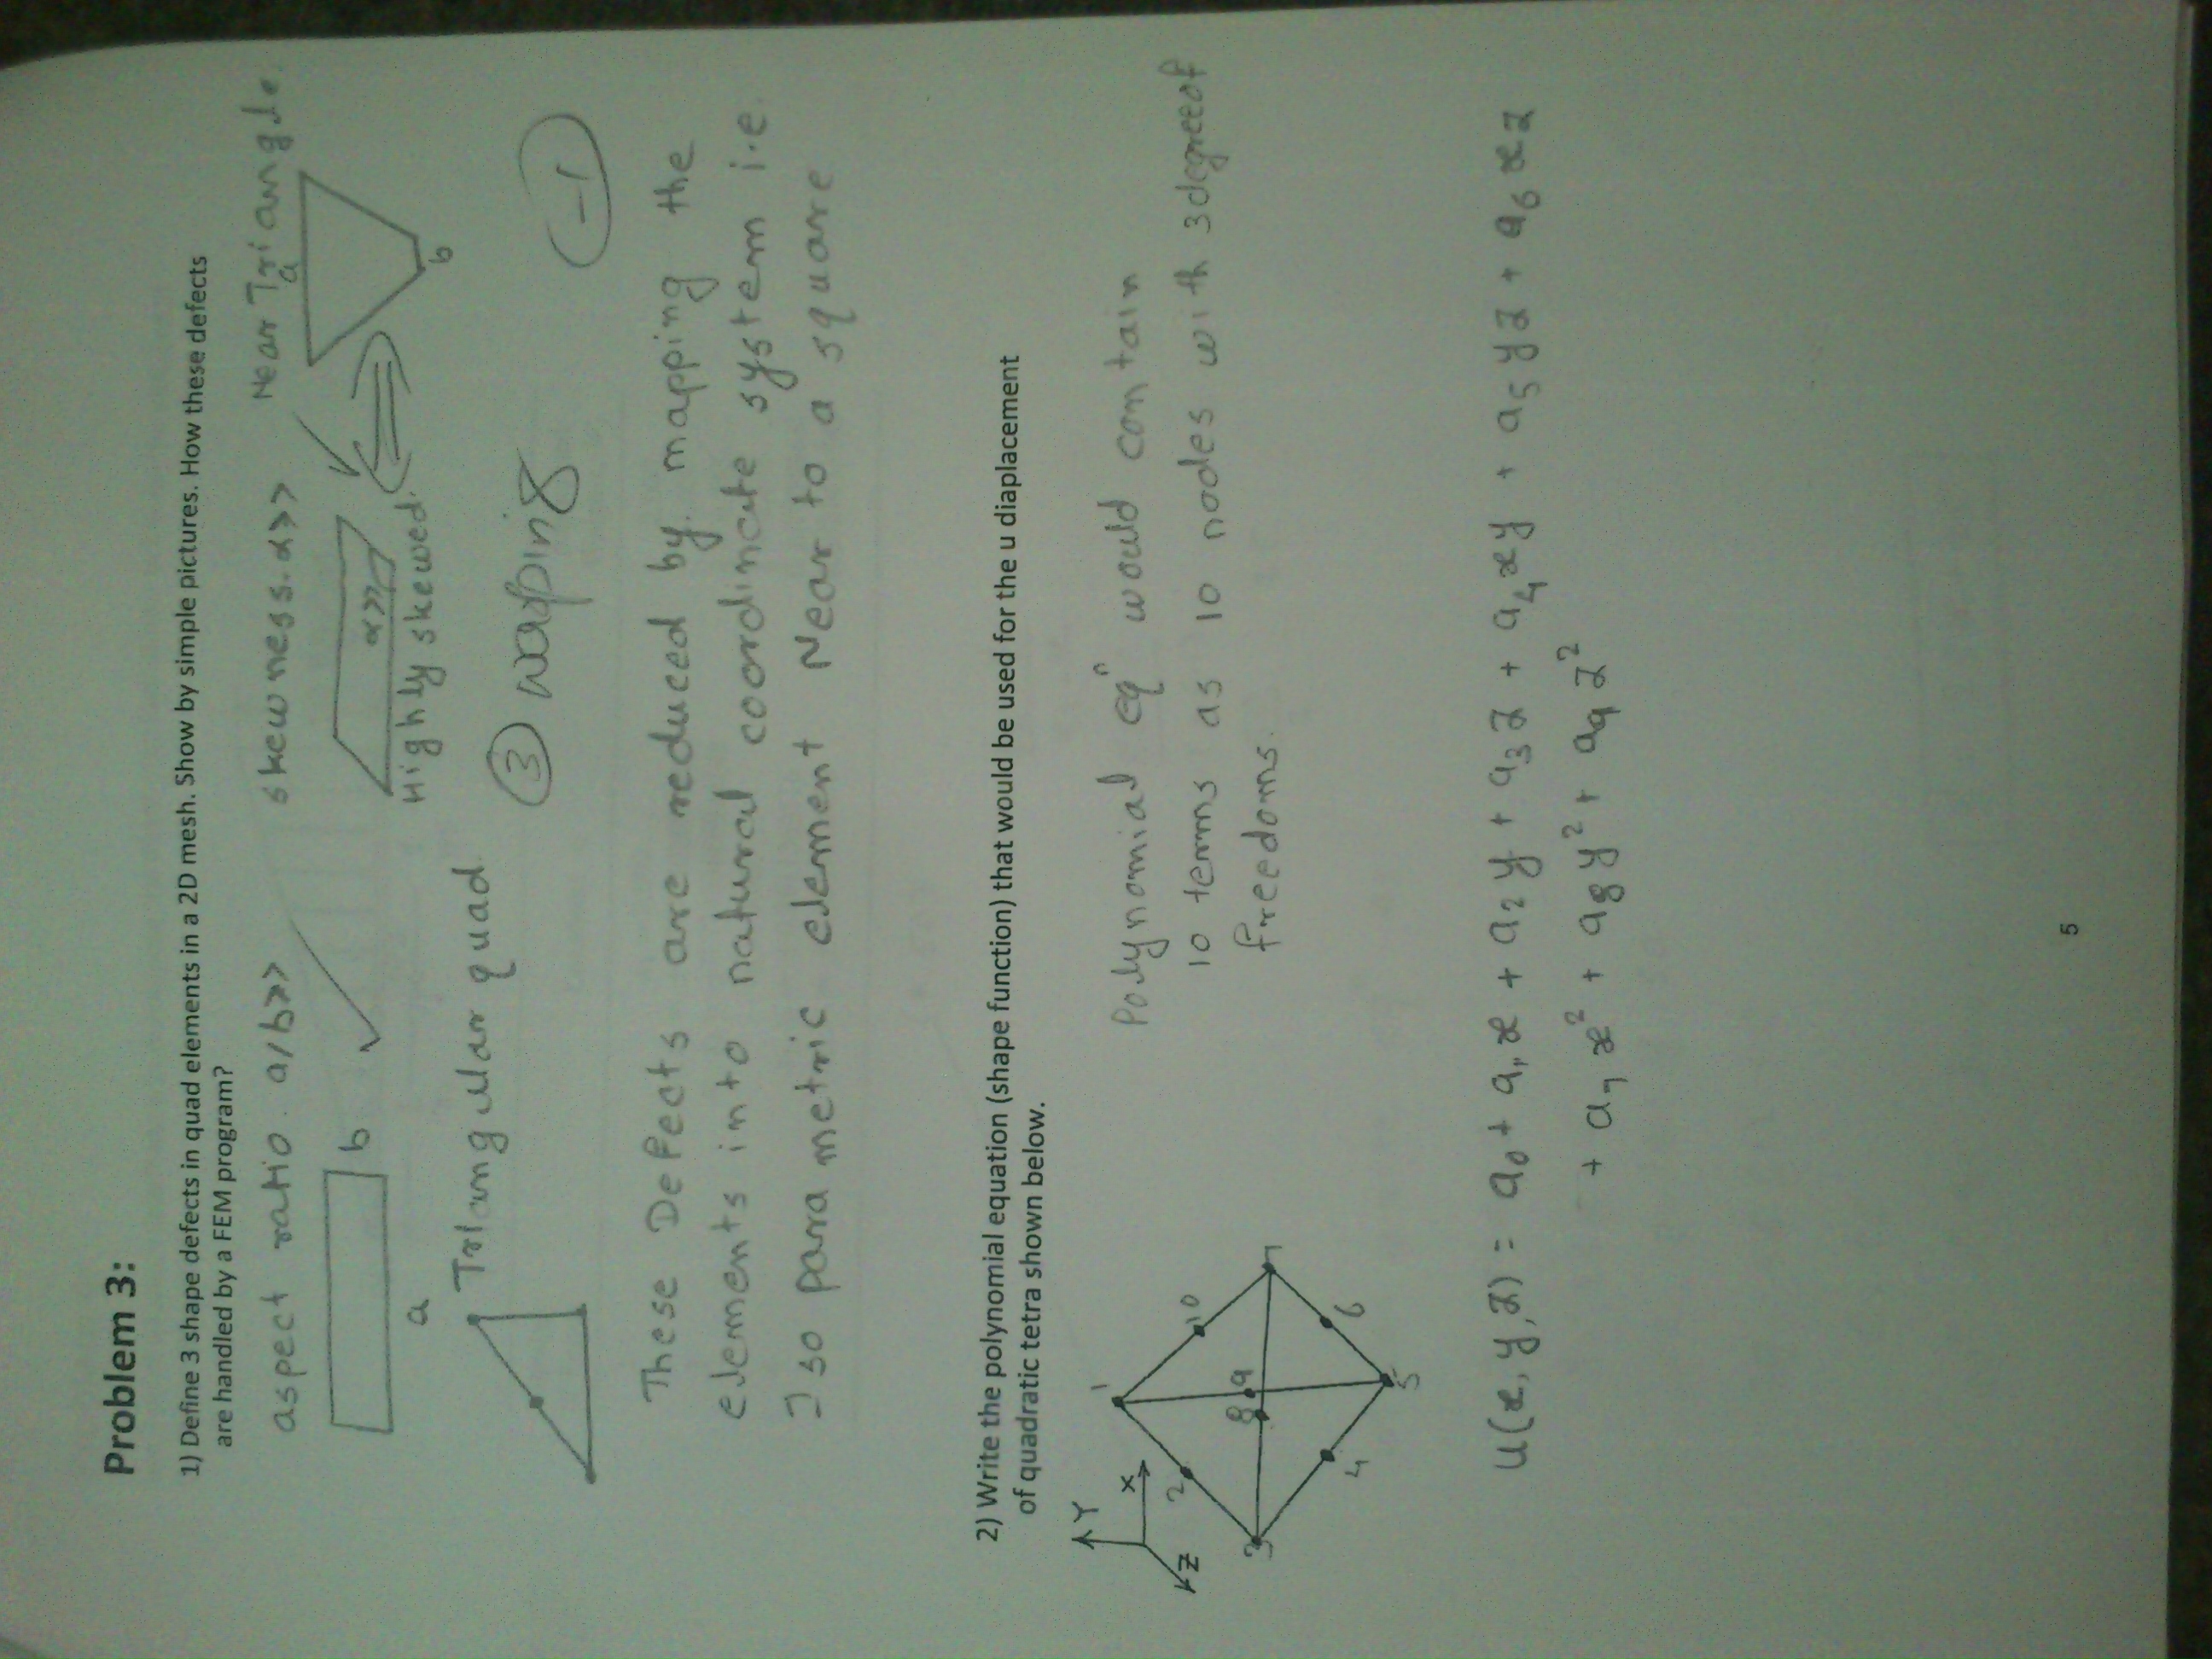 Problem 3:
1) Define 3 shape defects in quad elements in a 2D mesh. Show by simple pictures. How these defects
are handled by a FEM program?
aspect ratio. a/b>>
skewness. α>>
Near Triangle
a
b
a
α>>
Highly skewed.
b
Triangular quad
③ waping
-1
These Defects are reduced by mapping the
elements into natural coordinate system i.e.
Iso parametric element Near to a square
2) Write the polynomial equation (shape function) that would be used for the u diaplacement
of quadratic tetra shown below.
Y
X
Z
1
2
10
3
8
9
7
4
6
5
Polynomial eqⁿ would contain
10 terms as 10 nodes with 3 degree of
freedoms.
u(x,y,z) = a₀ + a₁x + a₂y + a₃z + a₄xy + a₅yz + a₆xz
+ a₇x² + a₈y² + a₉z²
5